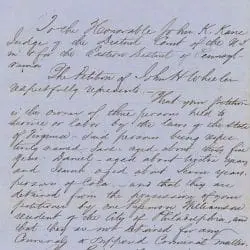 To the Honorable John K. Kane
Judge of the District Court of the U S
in & for the Eastern District of Pennsyl-
vania
The Petition of John H Wheeler
respectfully represents.
That your petitioner
is the owner of three persons held to
service or labor by the laws of the State
of Virginia; said persons being respec-
tively named Jane aged about thirty five
years Daniel aged about twelve years
and Isaiah aged about seven years
persons of Color and that they are
detained from the possession of your
petitioner by one Passmore Williamson
resident of the City of Philadelphia, and
that they are not detained for any
Criminal or supposed Criminal matter